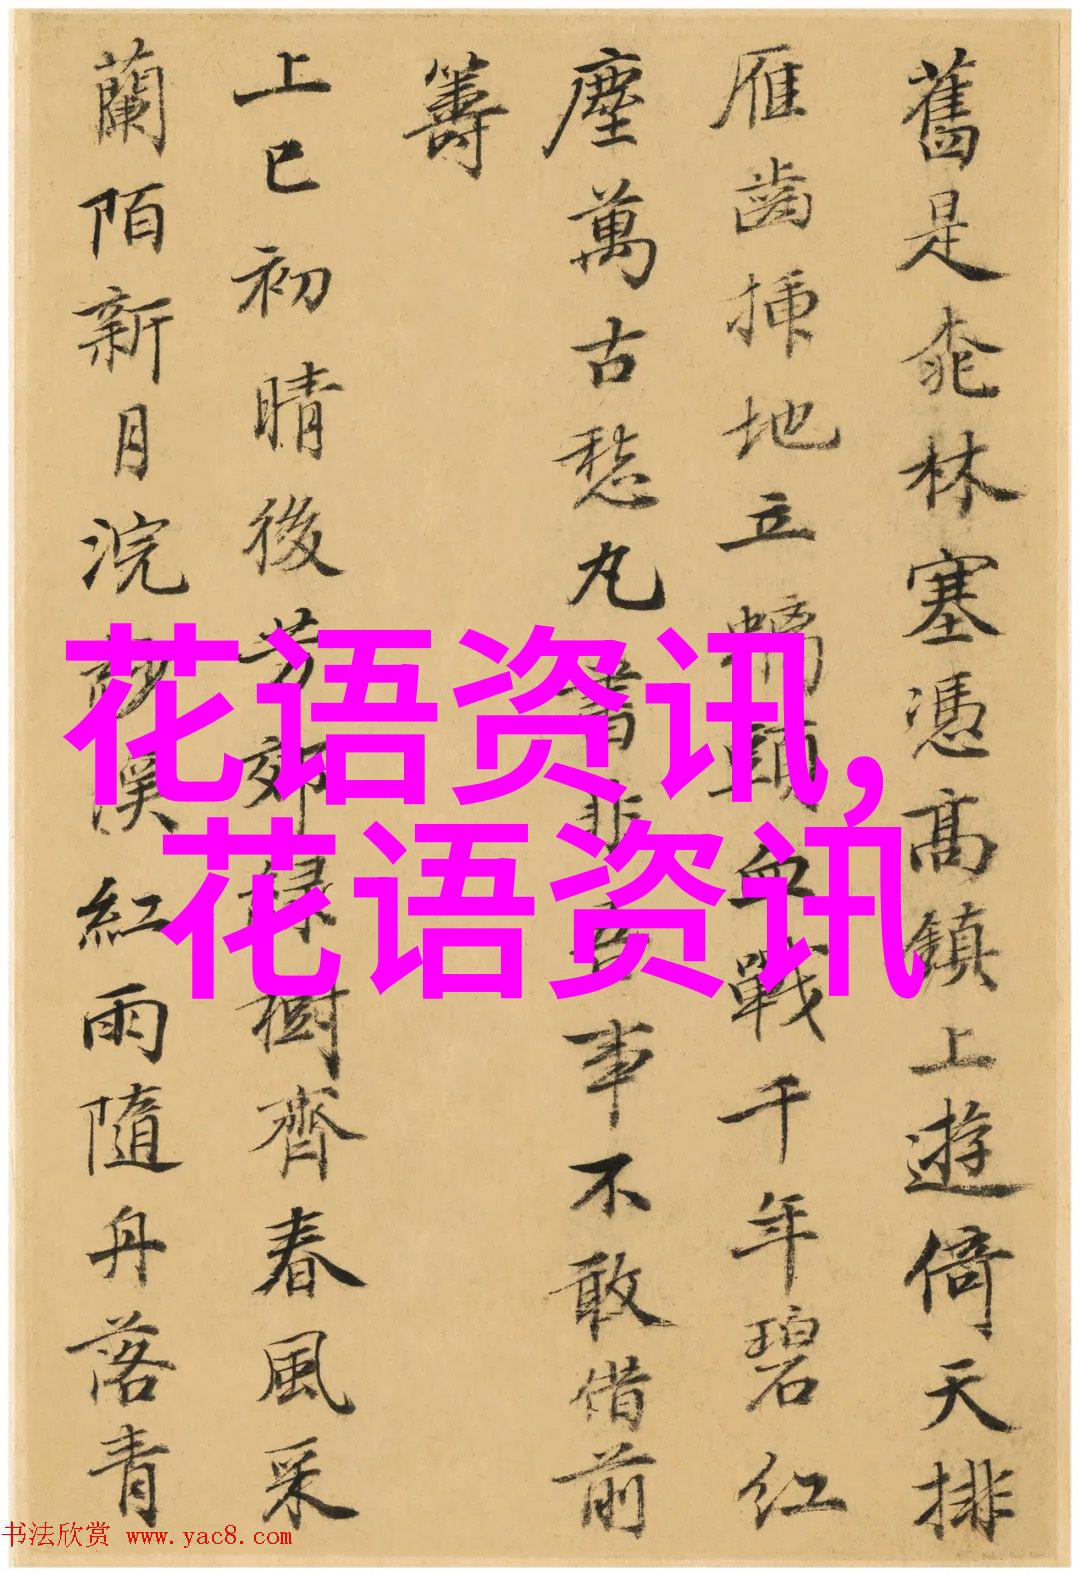 舊是桃林塞憑高鎮上遊倚天排
雁齒插地立螭頭血戰千年碧紅
塵萬古愁丸書非吾事不敢借前
籌
上巳初晴後芳郊綠樹齊春風采
蘭陌新月浣紗溪紅雨隨舟落青
花语资讯,
花语资讯
书法欣赏 www.yac8.com